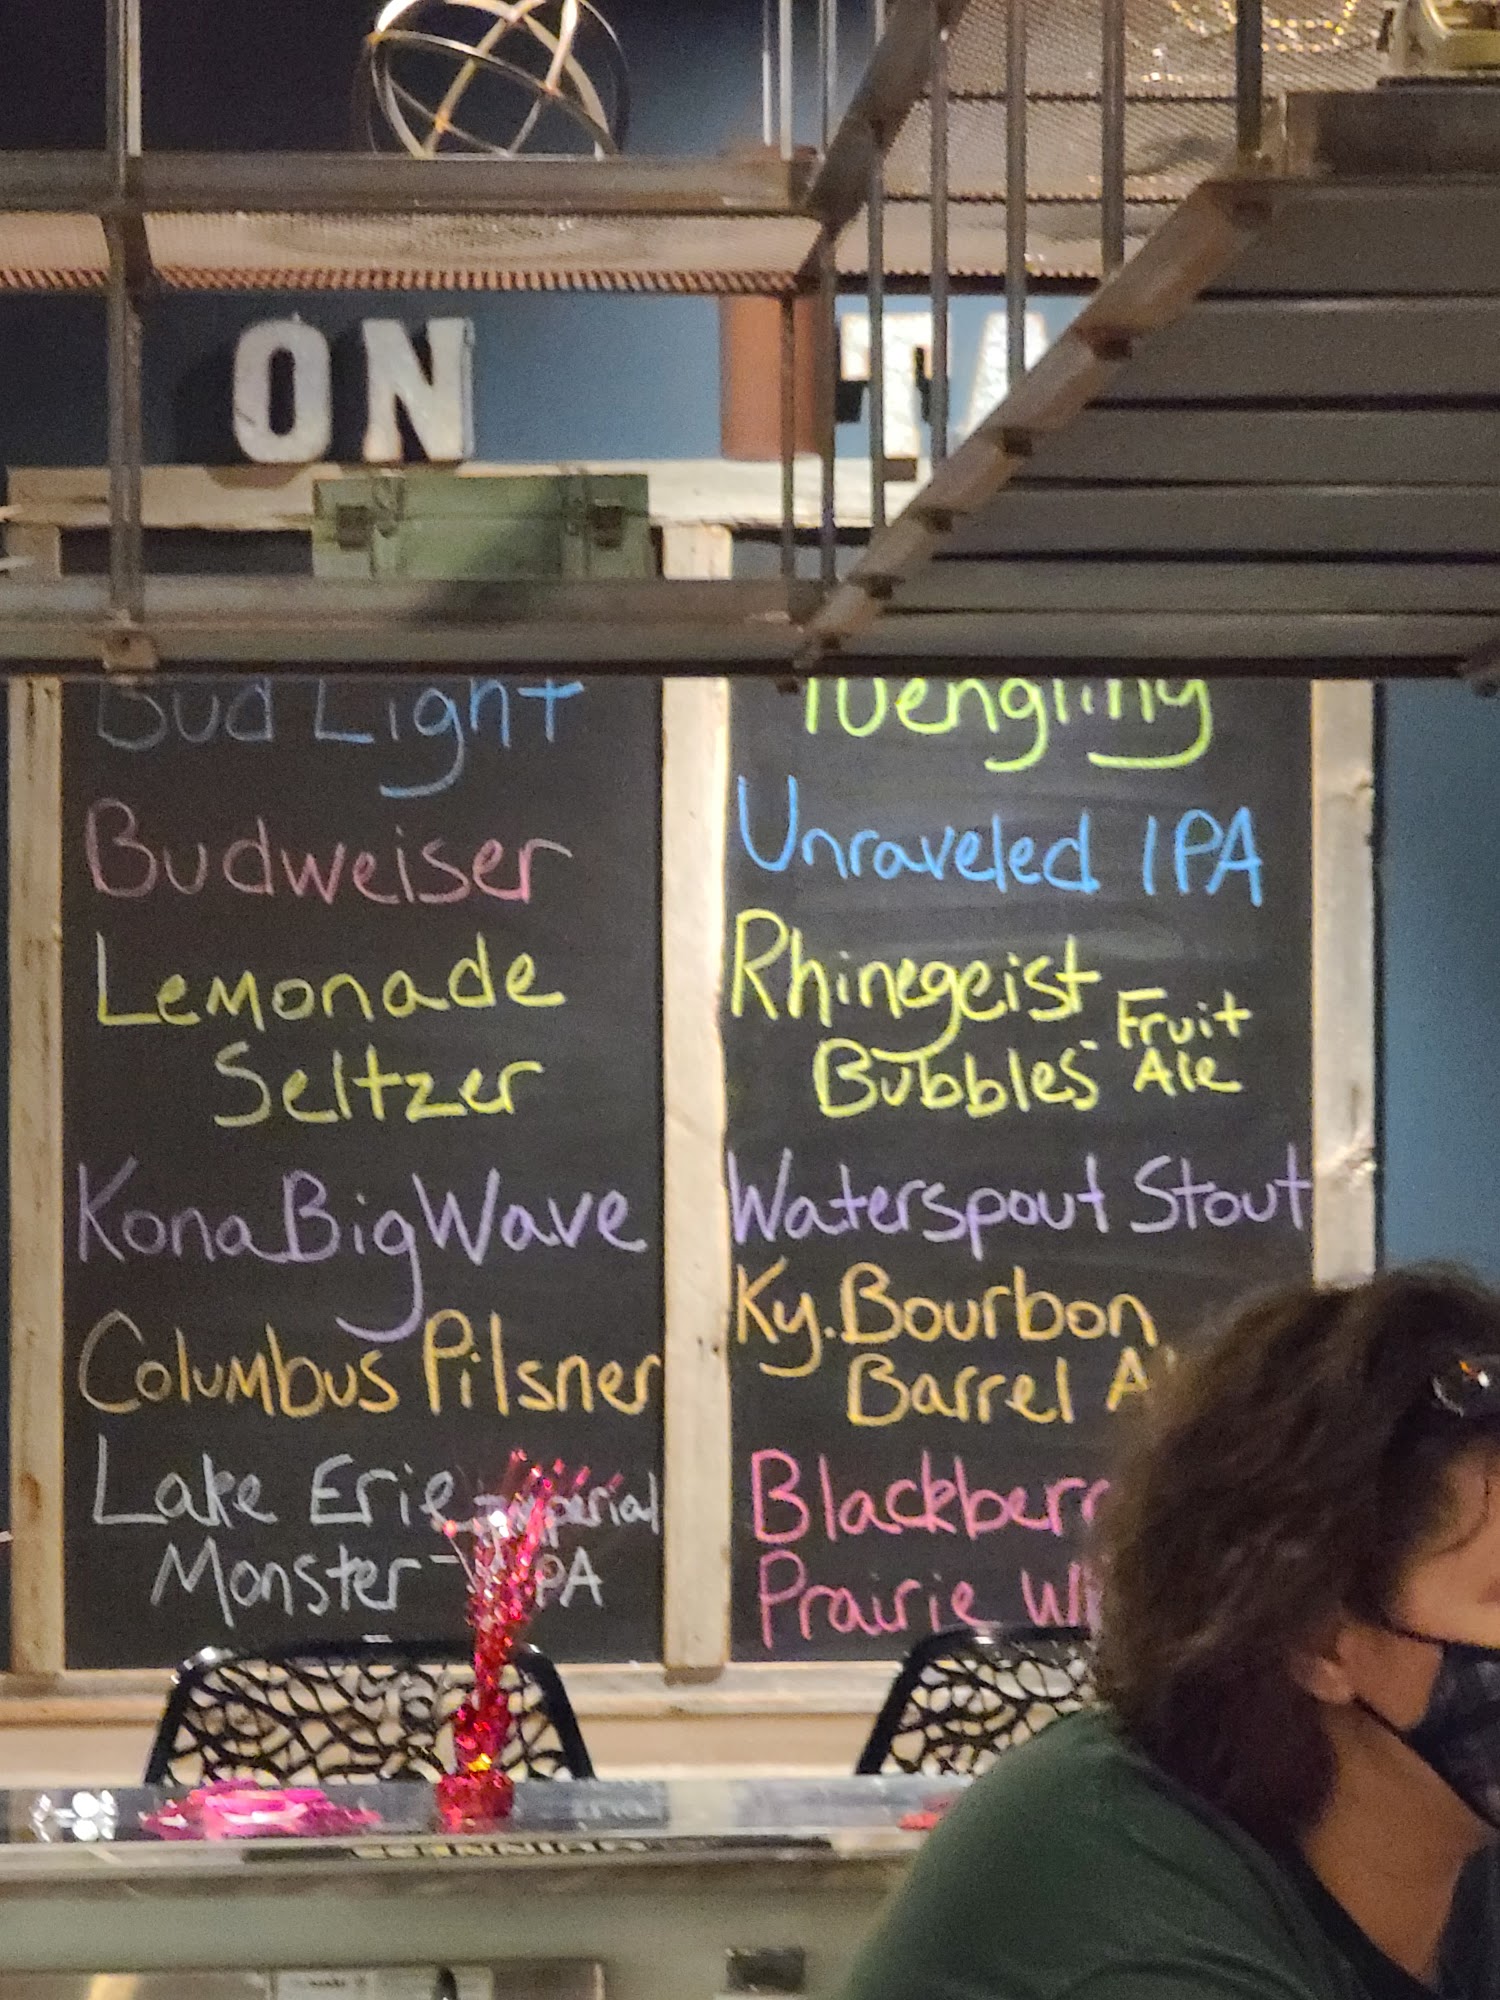 ON TA
Bud Light
Budweiser
Lemonade
Seltzer
Kona Big Wave
Columbus Pilsner
Lake Erie - Imperial
Monster - IPA
Yuengling
Unraveled IPA
Rhinegeist
Bubbles - Fruit
Ale
Waterspout Stout
Ky. Bourbon
Barrel A
Blackberr
Prairie Wh